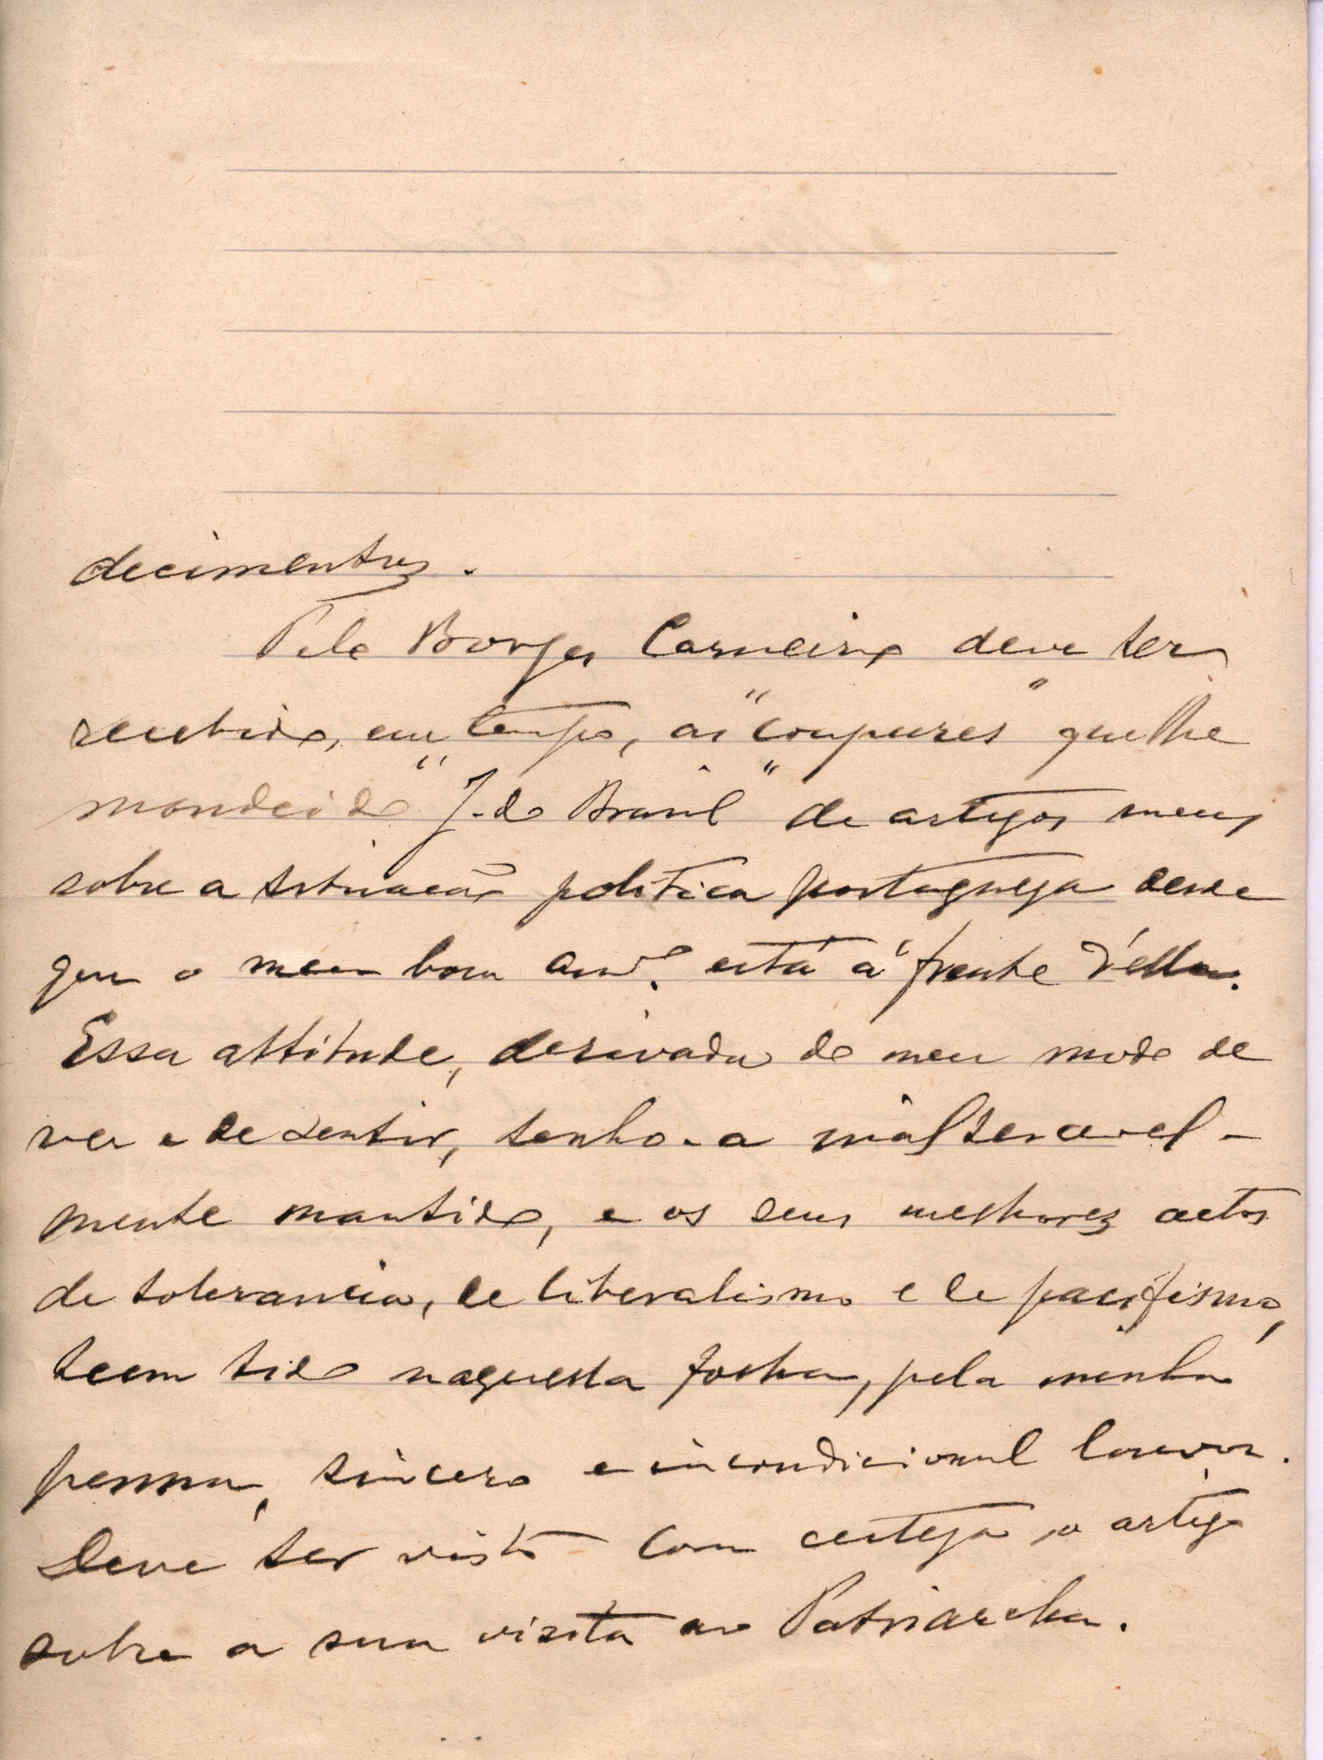 decimentos.
Pelo Borges Carneiro deve ter
recebido, em tempo, as "coupures" que lhe
mandei do "J. do Brasil" de artigos meus
sobre a situação politica portugueza desde
que o meu bom am.º está á frente d'ella.
Essa attitude, derivada do meu modo de
ver e de sentir, tenho-a inalteravel-
mente mantido, e os seus melhores actos
de tolerancia, de liberalismo e de pacifismo,
teem tido naquella folha, pela minha
penna, sincero e incondicional louvor.
Deve ter visto com certeza o artigo
sobre a sua visita ao Patriarcha.